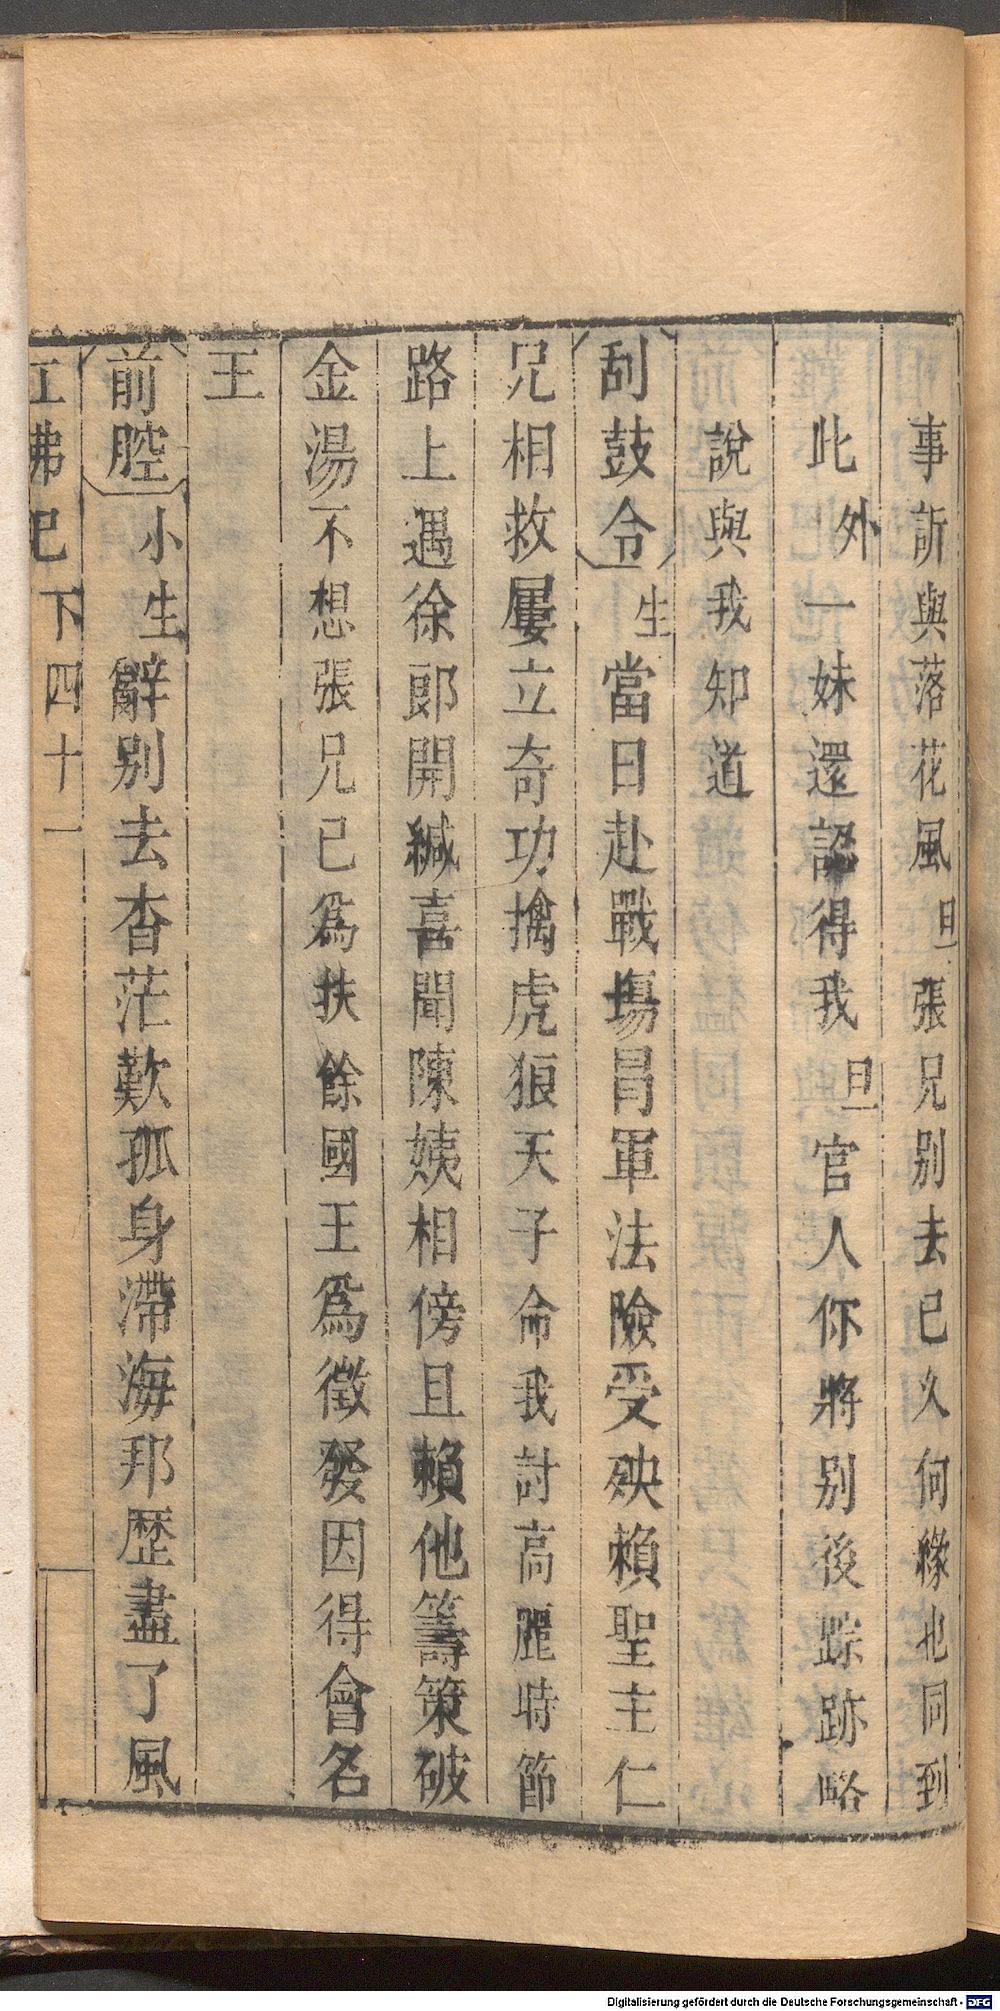 事訴與落花風旦張兄别去已久何緣也同到
此外一妹還認得我旦官人你將别後踪跡略
說與我知道
刮鼓令生當日赴戰場冐軍法險受殃賴聖主仁
兄相救屢立奇功擒虎狼天子命我討高麗時節
路上遇徐郎開緘喜聞陳姨相傍且賴他籌策破
金湯不想張兄已爲扶餘國王爲徵發因得會名
王
前腔小生辭别去杳茫歎孤身滯海邦歷盡了風
紅拂記下四十一
Digitalisierung gefördert durch die Deutsche Forschungsgemeinschaft - DFG